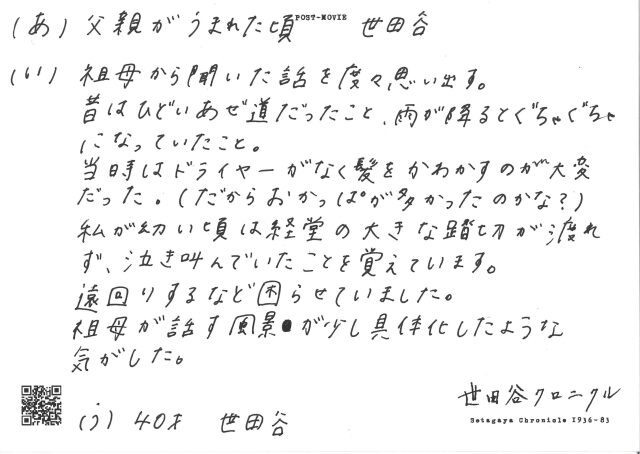 POST-MOVIE
(あ) 父親がうまれた頃 世田谷
(い) 祖母から聞いた話を度々思い出す。
昔はひどいあぜ道だったこと、雨が降るとぐちゃぐちゃ
になっていたこと。
当時はドライヤーがなく髪をかわかすのが大変
だった。(だからおかっぱが多かったのかな?)
私が幼い頃は経堂の大きな踏切が渡れ
ず、泣き叫んでいたことを覚えています。
遠回りするなど困らせていました。
祖母が話す風景が少し具体化したような
気がした。
(う) 40才 世田谷
世田谷クロニクル
Setagaya Chronicle 1936-83